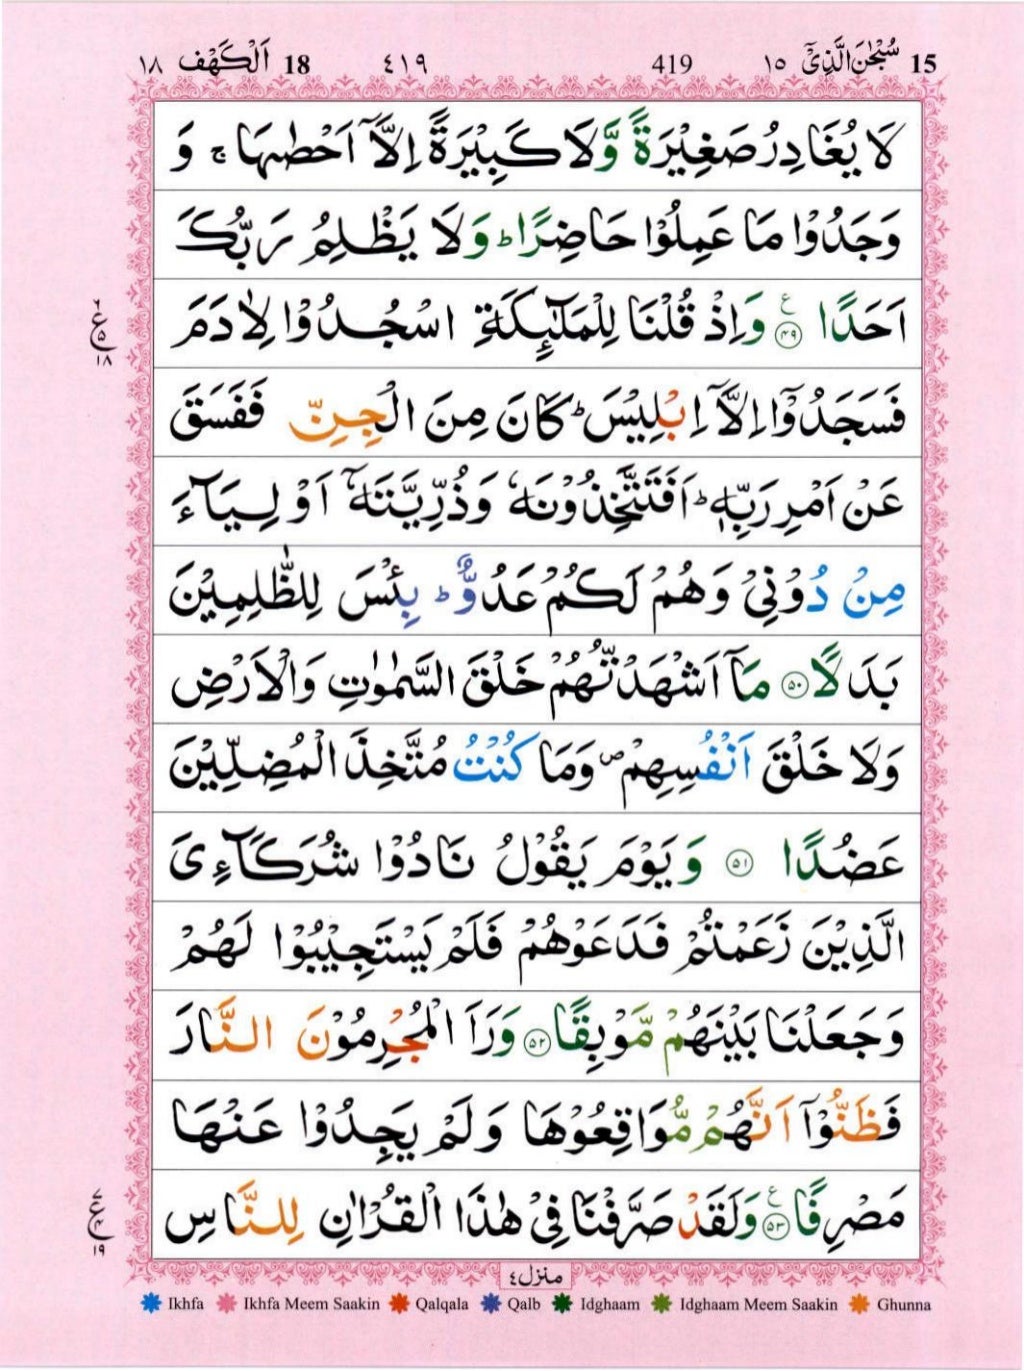 ١٨ اَلْكَهْف 18 ٤١٩ 419 ١٥ سُبْحٰنَ الَّذِیْۤ 15
لَا یُغَادِرُ صَغِیْرَةً وَّلَا كَبِیْرَةً اِلَّاۤ اَحْصٰىهَا ۚ وَ
وَجَدُوْا مَا عَمِلُوْا حَاضِرًا ؕ وَلَا یَظْلِمُ رَبُّكَ
اَحَدًا ۧ ﴿۴۹﴾ وَاِذْ قُلْنَا لِلْمَلٰٓىِٕكَةِ اسْجُدُوْا لِاٰدَمَ
ع
۵
١٨
فَسَجَدُوْۤا اِلَّاۤ اِبْلِیْسَ ؕ كَانَ مِنَ الْجِنِّ فَفَسَقَ
عَنْ اَمْرِ رَبِّهٖ ؕ اَفَتَتَّخِذُوْنَهٗ وَذُرِّیَّتَهٗۤ اَوْلِیَآءَ
مِنْ دُوْنِیْ وَهُمْ لَكُمْ عَدُوٌّ ؕ بِئْسَ لِلظّٰلِمِیْنَ
بَدَلًا ﴿۵۰﴾ مَاۤ اَشْهَدْتُّهُمْ خَلْقَ السَّمٰوٰتِ وَالْاَرْضِ
وَلَا خَلْقَ اَنْفُسِهِمْ ۪ وَمَا كُنْتُ مُتَّخِذَ الْمُضِلِّیْنَ
عَضُدًا ﴿۵۱﴾ وَیَوْمَ یَقُوْلُ نَادُوْا شُرَكَآءِیَ
الَّذِیْنَ زَعَمْتُمْ فَدَعَوْهُمْ فَلَمْ یَسْتَجِیْبُوْا لَهُمْ
وَجَعَلْنَا بَیْنَهُمْ مَّوْبِقًا ﴿۵۲﴾ وَرَاَ الْمُجْرِمُوْنَ النَّارَ
فَظَنُّوْۤا اَنَّهُمْ مُّوَاقِعُوْهَا وَلَمْ یَجِدُوْا عَنْهَا
مَصْرِفًا ۧ ﴿۵۳﴾ وَلَقَدْ صَرَّفْنَا فِیْ هٰذَا الْقُرْاٰنِ لِلنَّاسِ
ع
١٩
منزل٤
Ikhfa Ikhfa Meem Saakin Qalqala Qalb Idghaam Idghaam Meem Saakin Ghunna